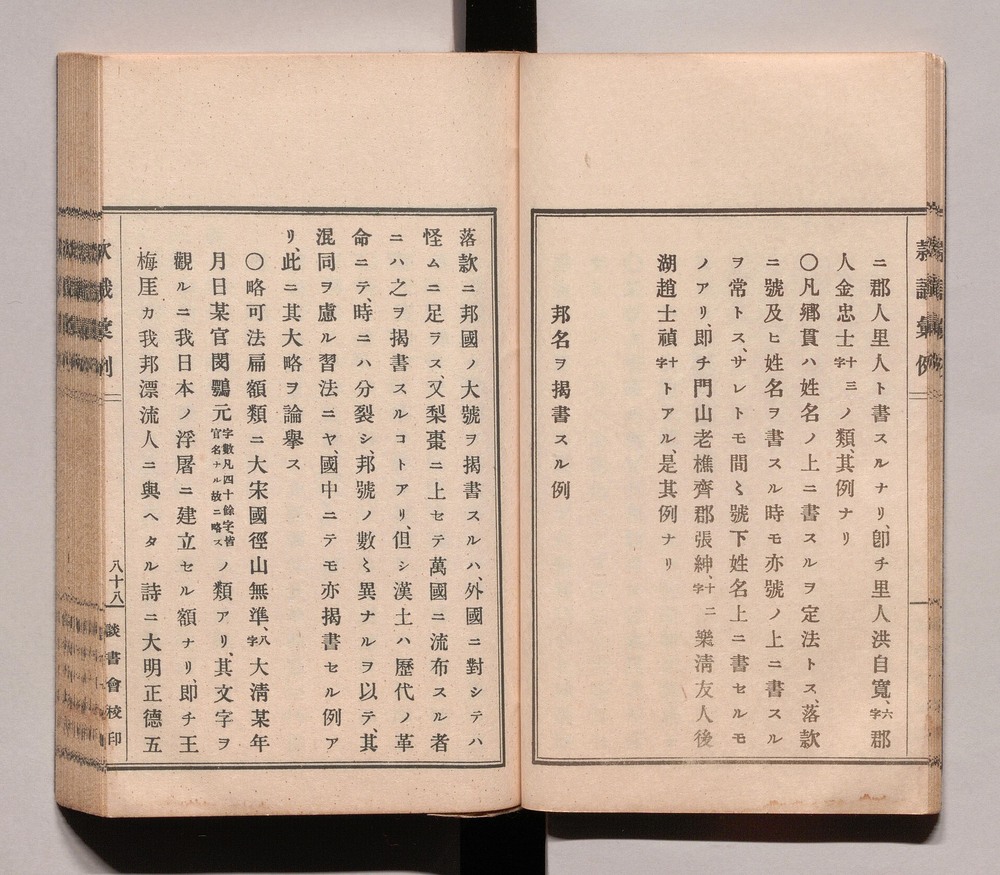 款識彙例
ニ郡人里人ト書スルナリ、卽チ里人洪自寬、六字郡
人金忠士十三字ノ類、其例ナリ
〇凡鄕貫ハ姓名ノ上ニ書スルヲ定法トス、落款
ニ號及ヒ姓名ヲ書スル時モ亦號ノ上ニ書スル
ヲ常トス、サレトモ間〻號下姓名上ニ書セルモ
ノアリ、卽チ門山老樵齊郡張紳、十二字樂淸友人後
湖趙士禎十字トアル、是其例ナリ
邦名ヲ揭書スル例
落款ニ邦國ノ大號ヲ揭書スルハ、外國ニ對シテハ
怪ムニ足ラス、又梨棗ニ上セテ萬國ニ流布スル者
ニハ之ヲ揭書スルコトアリ、但シ漢土ハ歷代ノ革
命ニテ、時ニハ分裂シ、邦號ノ數〻異ナルヲ以テ、其
混同ヲ慮ル習法ニヤ、國中ニテモ亦揭書セル例ア
リ、此ニ其大略ヲ論擧ス
〇略可法扁額類ニ大宋國徑山無準、八字大淸某年
月日某官閔鶚元字數凡四十餘字、皆官名ナル故ニ略スノ類アリ、其文字ヲ
觀ルニ我日本ノ浮屠ニ建立セル額ナリ、卽チ王
梅厓カ我邦漂流人ニ與ヘタル詩ニ大明正德五
八十八
談書會校印